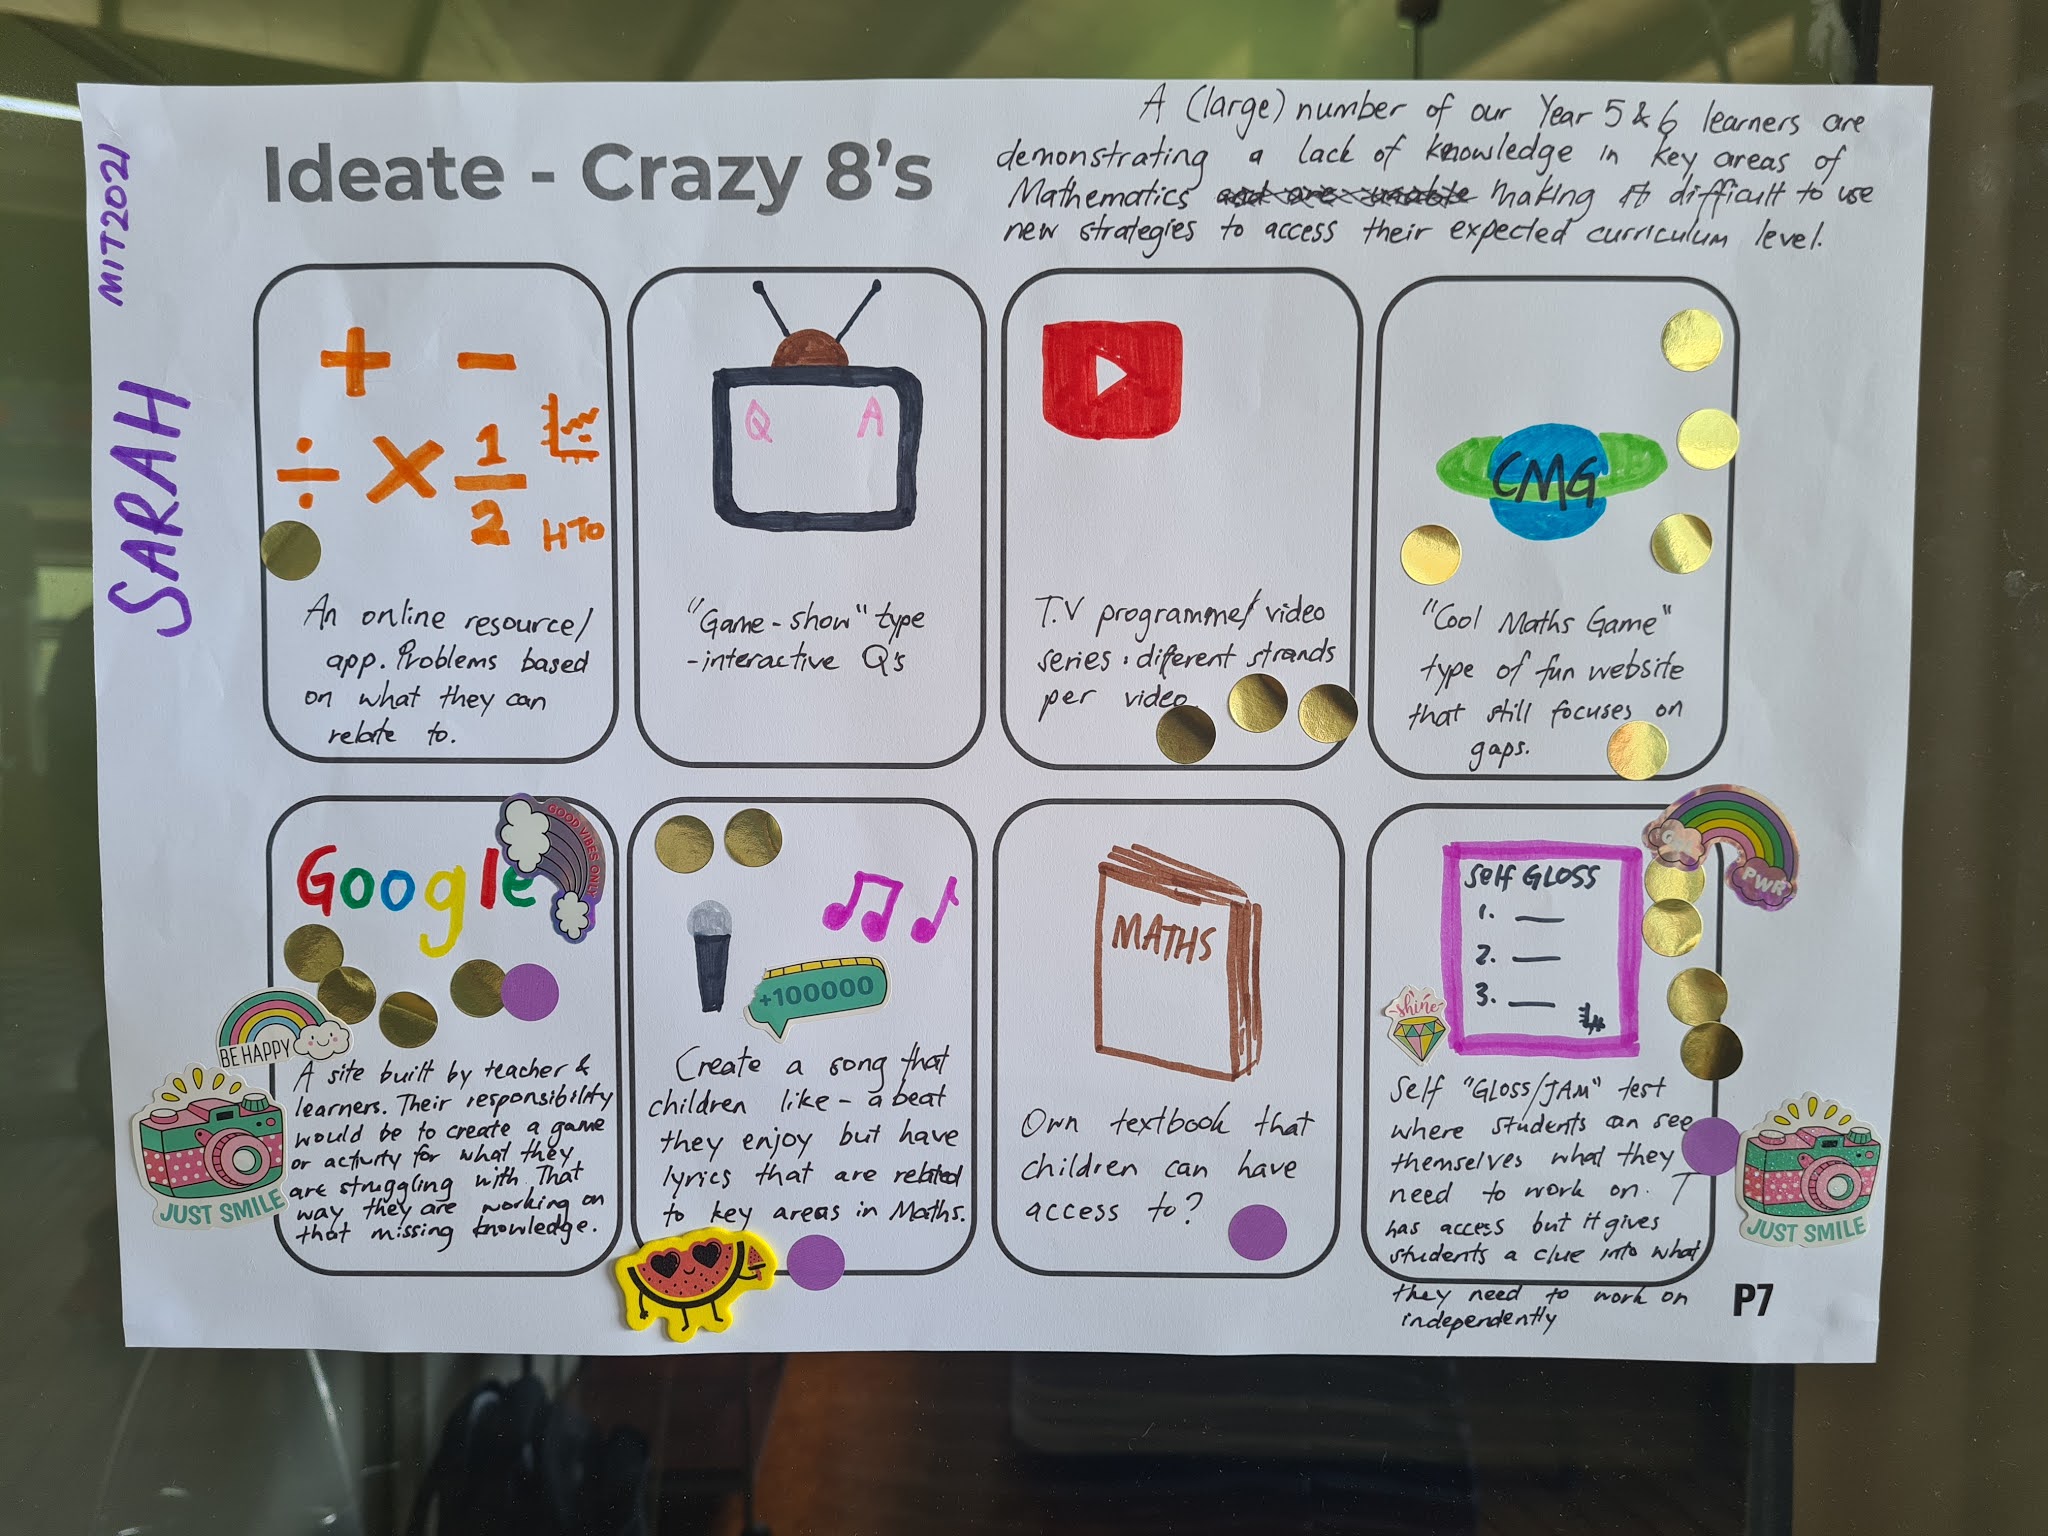 MIT2021
SARAH
Ideate - Crazy 8's
A (large) number of our Year 5 & 6 learners are
demonstrating a lack of knowledge in key areas of
Mathematics and are unable making it difficult to use
new strategies to access their expected curriculum level.
+ -
÷ × 1/2
HTO
An online resource/
app. Problems based
on what they can
relate to.
Q A
"Game-show" type
-interactive Q's
T.V programme/video
series: different strands
per video.
CMG
"Cool Maths Game"
type of fun website
that still focuses on
gaps.
Google
GOOD VIBES ONLY
BE HAPPY
JUST SMILE
A site built by teacher &
learners. Their responsibility
would be to create a game
or activity for what they
are struggling with. That
way they are working on
that missing knowledge.
+100000
Create a song that
children like - a beat
they enjoy but have
lyrics that are related
to key areas in Maths.
MATHS
Own textbook that
children can have
access to?
PWR
Self GLOSS
1.
2.
3.
shine
Self "GLOSS/JAM" test
where students can see
themselves what they
need to work on. T
has access but it gives
students a clue into what
they need to work on
independently
JUST SMILE
P7